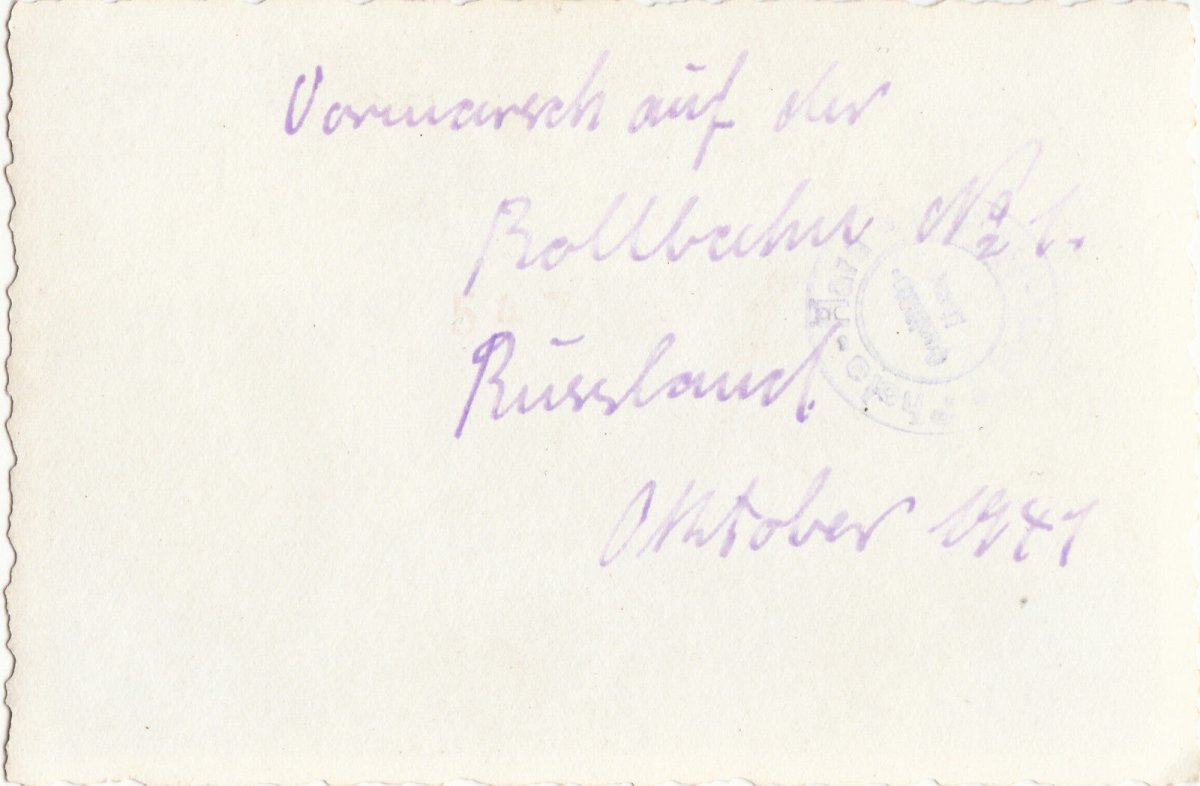 Vormarsch auf der
Rollbahn No 1.
Russland.
Oktober 1941